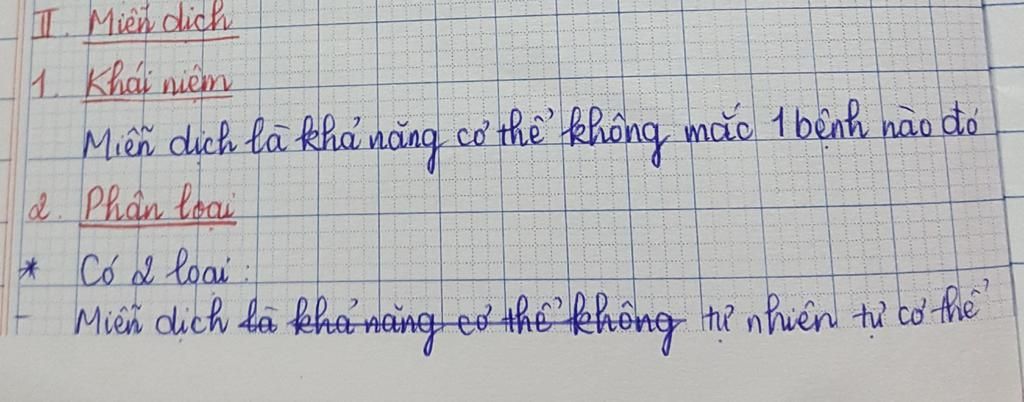 II. Miễn dịch
1. Khái niệm
Miễn dịch là khả năng cơ thể không mắc 1 bệnh nào đó
2. Phân loại
* Có 2 loại:
- Miễn dịch là khả năng cơ thể không tự nhiên từ cơ thể